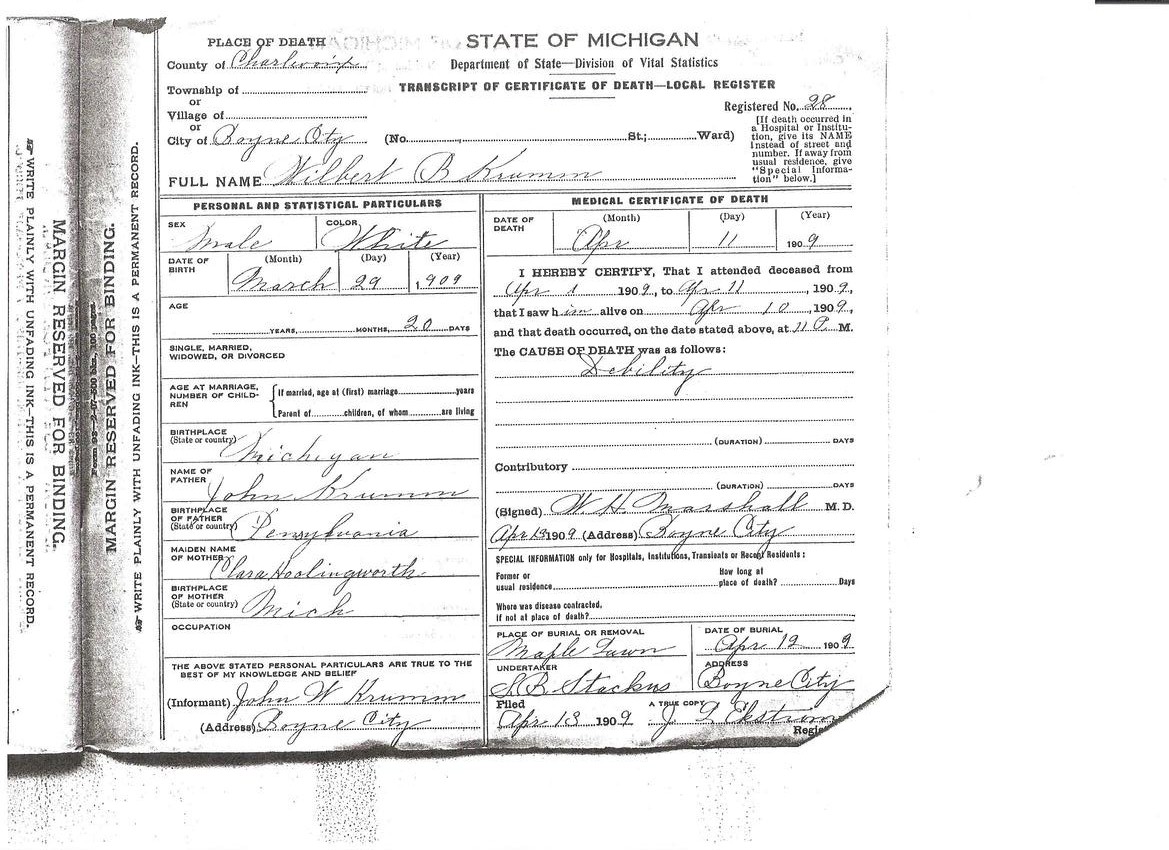 WRITE PLAINLY WITH UNFADING INK—THIS IS A PERMANENT RECORD.
MARGIN RESERVED FOR BINDING.
MARGIN RESERVED FOR BINDING.
WRITE PLAINLY WITH UNFADING INK—THIS IS A PERMANENT RECORD.
PLACE OF DEATH
County of Charlevoix
Township of
or
Village of
or
City of Boyne City
STATE OF MICHIGAN
Department of State—Division of Vital Statistics
TRANSCRIPT OF CERTIFICATE OF DEATH—LOCAL REGISTER
Registered No. 28
(No. St.; Ward)
[If death occurred in
a Hospital or Institu-
tion, give its NAME
instead of street and
number. If away from
usual residence, give
"Special Informa-
tion" below.]
FULL NAME Wilbert B Krumm
PERSONAL AND STATISTICAL PARTICULARS
SEX Male
COLOR White
DATE OF BIRTH
(Month) (Day) (Year)
March 29 1909
AGE
YEARS, MONTHS, 20 DAYS
SINGLE, MARRIED,
WIDOWED, OR DIVORCED
AGE AT MARRIAGE,
NUMBER OF CHILD-
REN
If married, age at (first) marriage years
Parent of children, of whom are living
BIRTHPLACE
(State or country) Michigan
NAME OF
FATHER John Krumm
BIRTHPLACE
OF FATHER
(State or country) Pensylvania
MAIDEN NAME
OF MOTHER Clara Hoolingworth
BIRTHPLACE
OF MOTHER
(State or country) Mich
OCCUPATION
THE ABOVE STATED PERSONAL PARTICULARS ARE TRUE TO THE
BEST OF MY KNOWLEDGE AND BELIEF
(Informant) John W Krumm
(Address) Boyne City
MEDICAL CERTIFICATE OF DEATH
DATE OF
DEATH
(Month) (Day) (Year)
Apr 11 1909
I HEREBY CERTIFY, That I attended deceased from
Apr 1 1909, to Apr 11, 1909,
that I saw him alive on Apr 10, 1909,
and that death occurred, on the date stated above, at 11 P. M.
The CAUSE OF DEATH was as follows:
Debility
(DURATION) DAYS
Contributory
(DURATION) DAYS
(Signed) W. H. Marshall M. D.
Apr 13 1909 (Address) Boyne City
SPECIAL INFORMATION only for Hospitals, Institutions, Transients or Recent Residents:
Former or
usual residence
How long at
place of death? Days
Where was disease contracted,
if not at place of death?
PLACE OF BURIAL OR REMOVAL
Maple Lawn
DATE OF BURIAL
Apr 12 1909
UNDERTAKER
S. B. Stackus
ADDRESS
Boyne City
Filed
Apr 13 1909
A TRUE COPY
J. Ekstrom